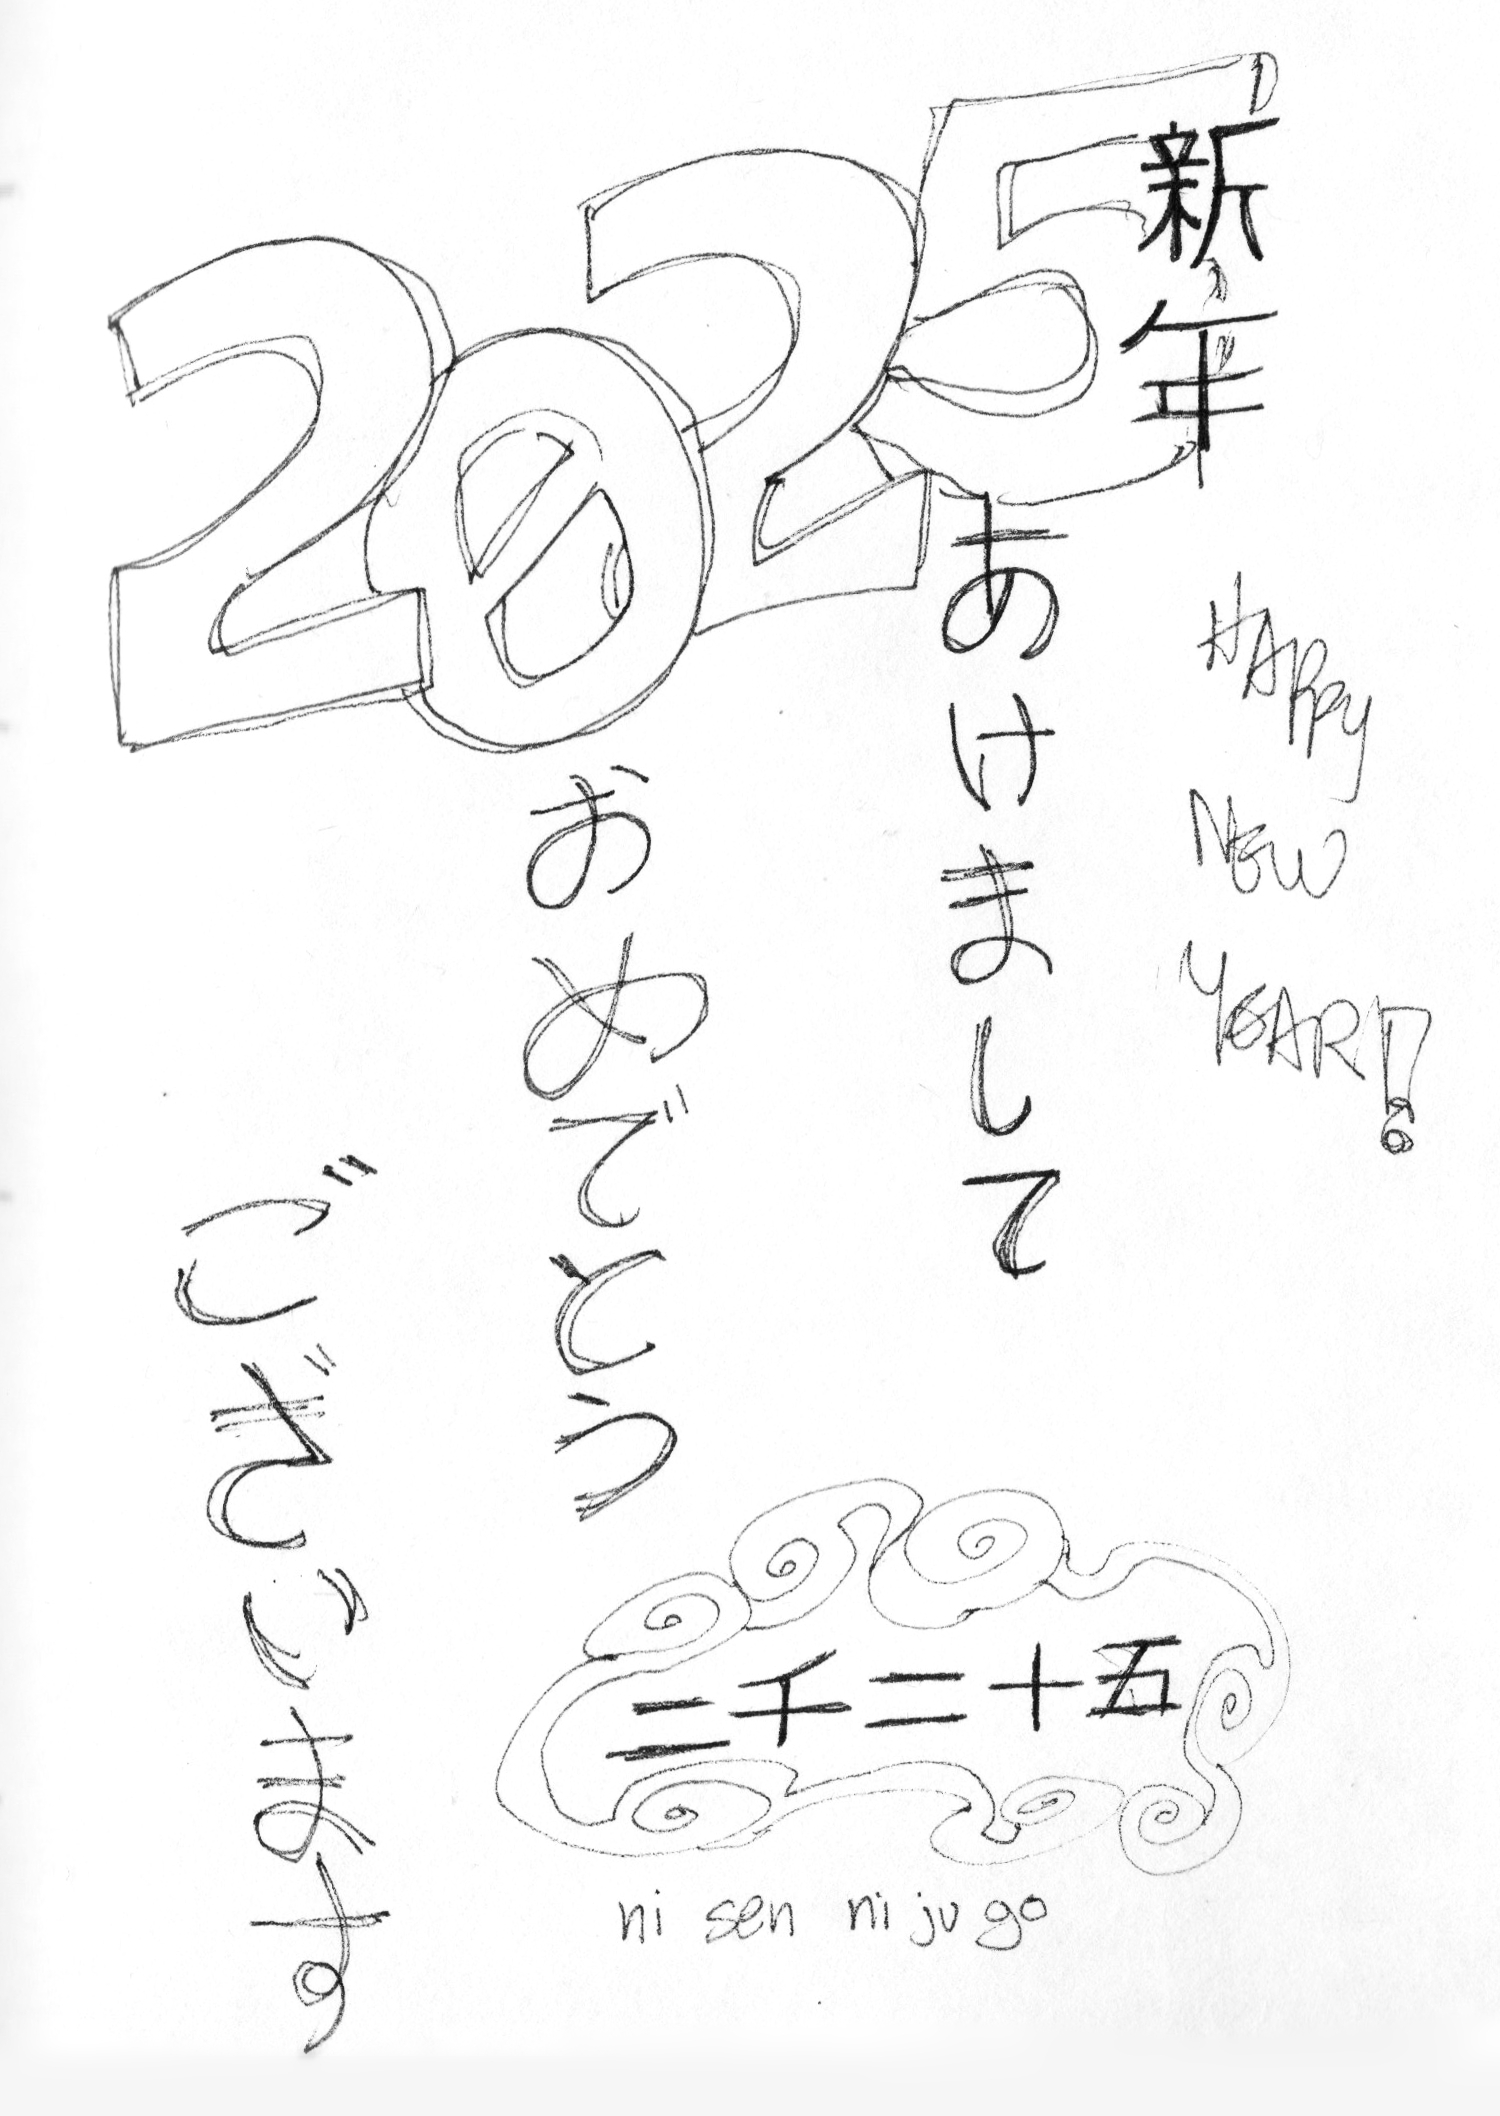 2025
新年
あけまして
おめでとう
ございます
HAPPY
NEW
YEAR!
二千二十五
ni sen ni ju go